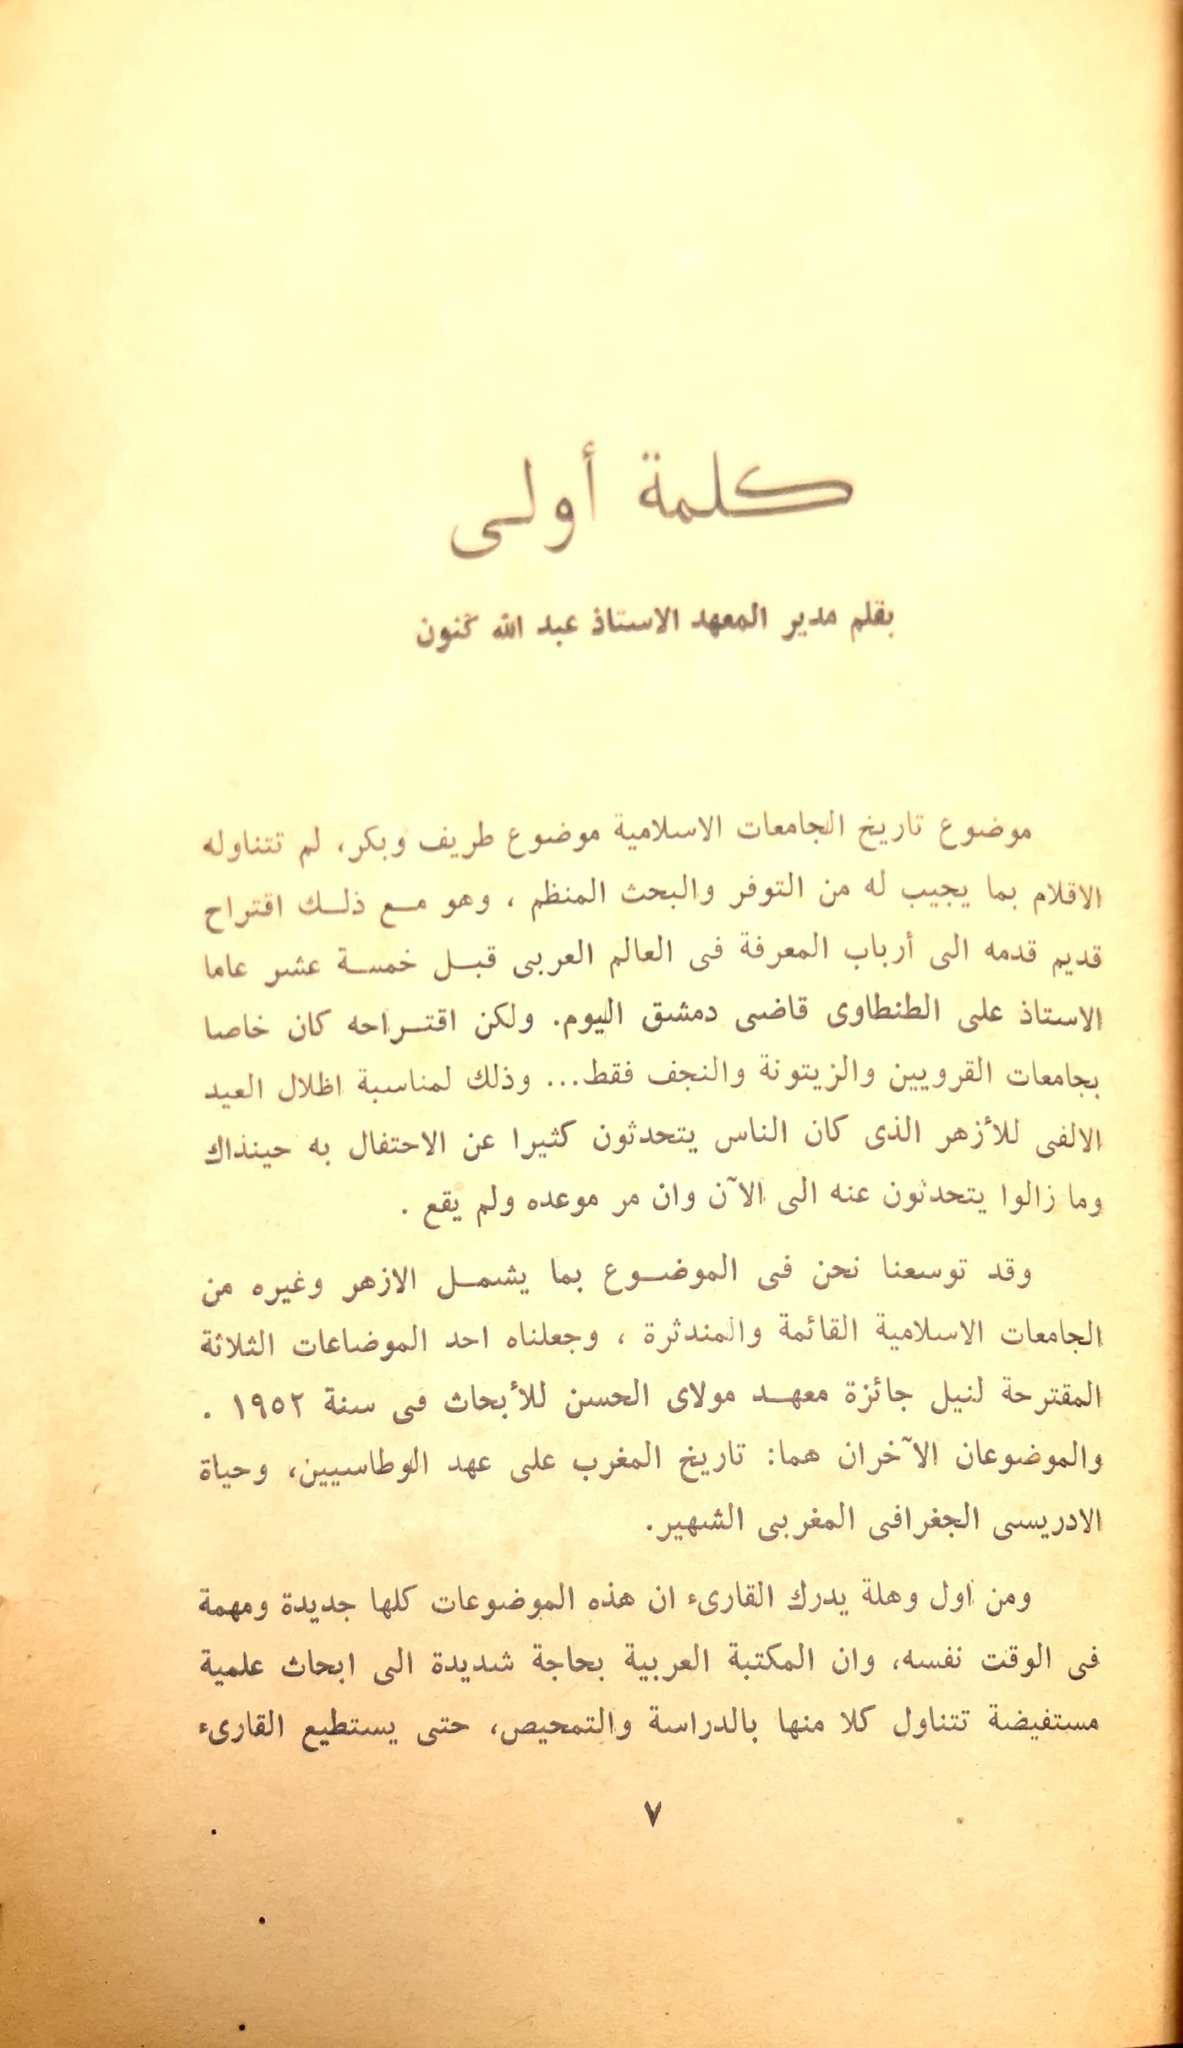 كلمة أولى
بقلم مدير المعهد الاستاذ عبد الله كنون
موضوع تاريخ الجامعات الاسلامية موضوع طريف وبكر، لم تتناوله
الاقلام بما يجيب له من التوفر والبحث المنظم ، وهو مع ذلك اقتراح
قديم قدمه الى أرباب المعرفة فى العالم العربى قبل خمسة عشر عاما
الاستاذ على الطنطاوى قاضى دمشق اليوم. ولكن اقتراحه كان خاصا
بجامعات القرويين والزيتونة والنجف فقط... وذلك لمناسبة اظلال العيد
الالفى للأزهر الذى كان الناس يتحدثون كثيرا عن الاحتفال به حينذاك
وما زالوا يتحدثون عنه الى الآن وان مر موعده ولم يقع .
وقد توسعنا نحن فى الموضوع بما يشمل الازهر وغيره من
الجامعات الاسلامية القائمة والمندثرة ، وجعلناه احد الموضاعات الثلاثة
المقترحة لنيل جائزة معهد مولاى الحسن للأبحاث فى سنة ١٩٥٢ .
والموضوعان الآخران هما: تاريخ المغرب على عهد الوطاسيين، وحياة
الادريسى الجغرافى المغربى الشهير.
ومن اول وهلة يدرك القارىء ان هذه الموضوعات كلها جديدة ومهمة
فى الوقت نفسه، وان المكتبة العربية بحاجة شديدة الى ابحاث علمية
مستفيضة تتناول كلا منها بالدراسة والتمحيص، حتى يستطيع القارىء
٧